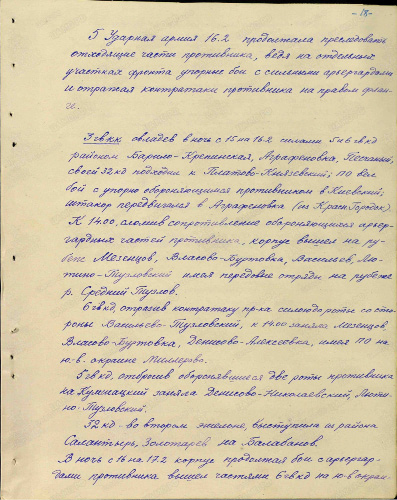 - 18 -
5 Ударная армия 16.2 продолжала преследовать
отходящие части противника, ведя на отдельных
участках фронта упорные бои с сильными арьергардами
и отражая контратаки противника на правом флан-
ге.
3 гв. кк овладев в ночь с 15 на 16.2 силами 5 и 6 гв кд
районом Барило-Крепинская, Аграфеновка,
своей 32 кд подходил к Платово-Князевский; ПО вел
бой с упорно обороняющимся противником в Киевский;
штакор передвигался в Аграфеновка (из Красн. Городок).
К 14.00, сломив сопротивление обороняющихся арьер-
гардных частей противника, корпус вышел на ру-
беж Мезенцов, Власово-Буртовка, Васильев, Лю-
тино-Тузловский имея передовые отряды на рубеже
р. Средний Тузлов.
6 гв кд, отразив контратаку пр-ка силою до роты со сто-
роны Васильево-Тузловский, к 14.00 заняла Мезенцов,
Власово-Буртовка, Денисово-Алексеевка, имея ПО на
ю.-в. окраине Миллерово.
5 гв кд, отбросив оборонявшиеся две роты противника
на Кумшацкий заняла Денисово-Николаевский, Лютин-
но-Тузловский.
32 кд - во втором эшелоне, выступила из района
Золотарев на Балабанов.
В ночь с 16 на 17.2 корпус продолжая бои с арьергар-
дами противника вышел частями 6 гв кд на ю-в окраи-